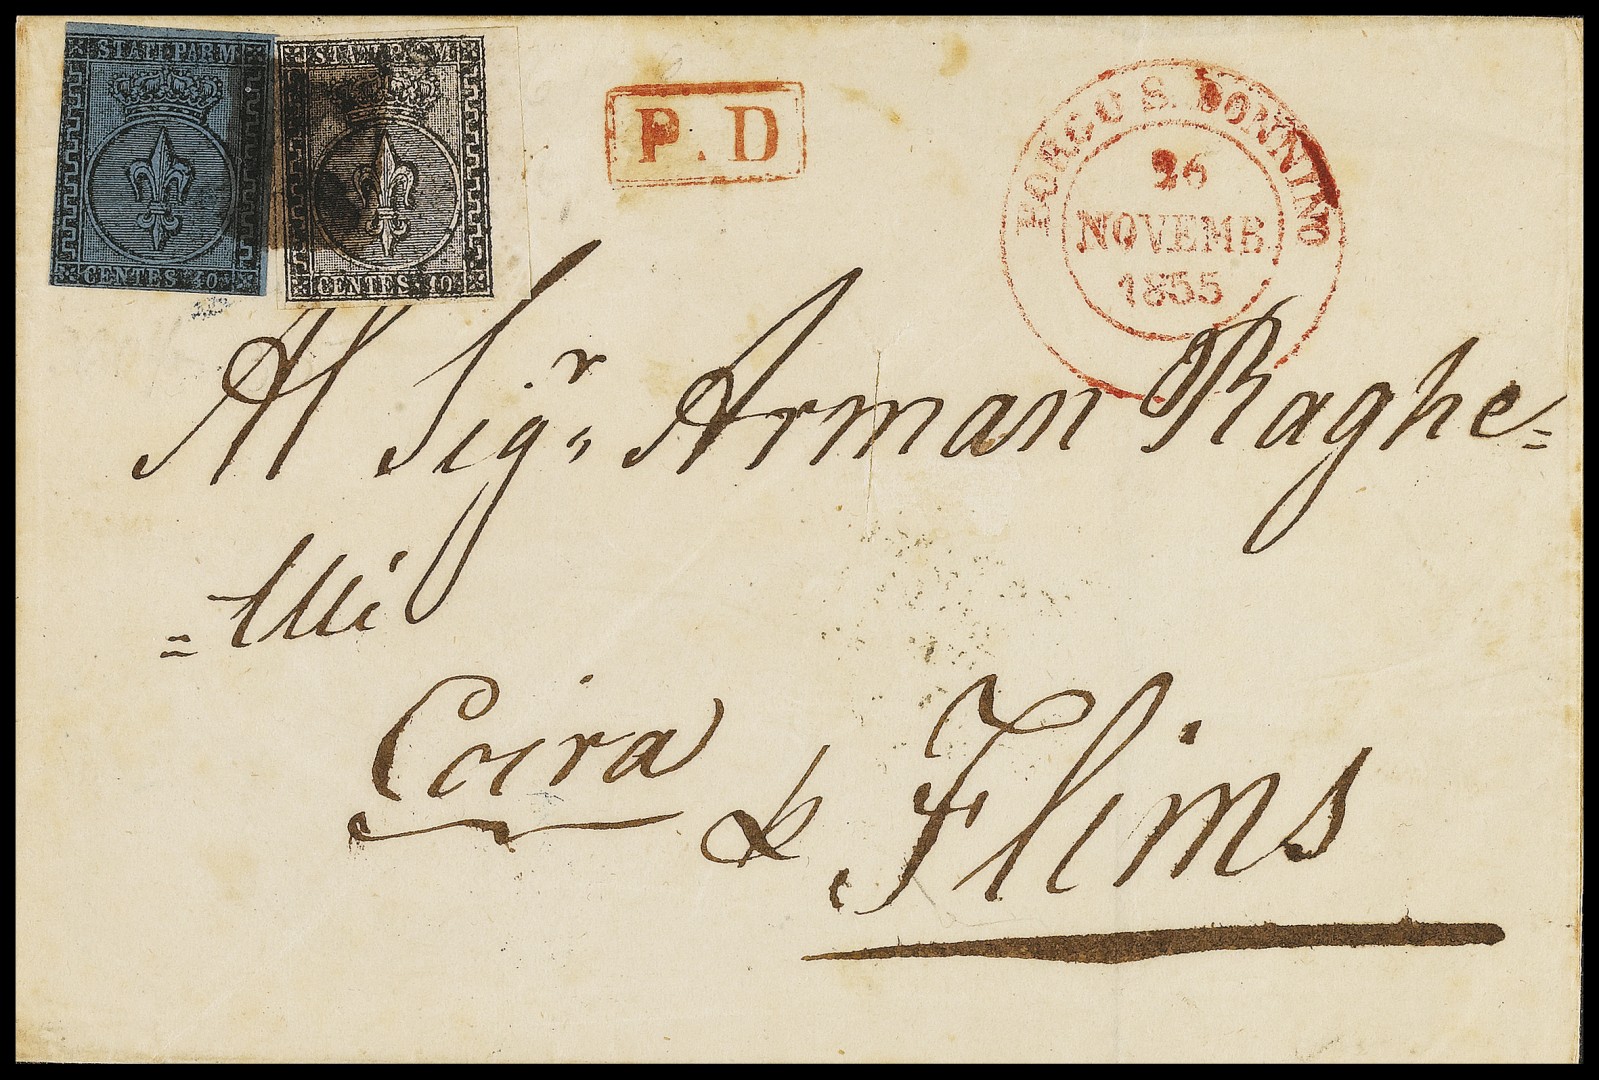 STATI PARM
CENTES. 40
STATI PARM
CENTES. 10
P.D
BORGO S. DONNINO
26
NOVEMB.
1855
Al Sigr. Arman Raghe=
=ttli
Coira
& Flims